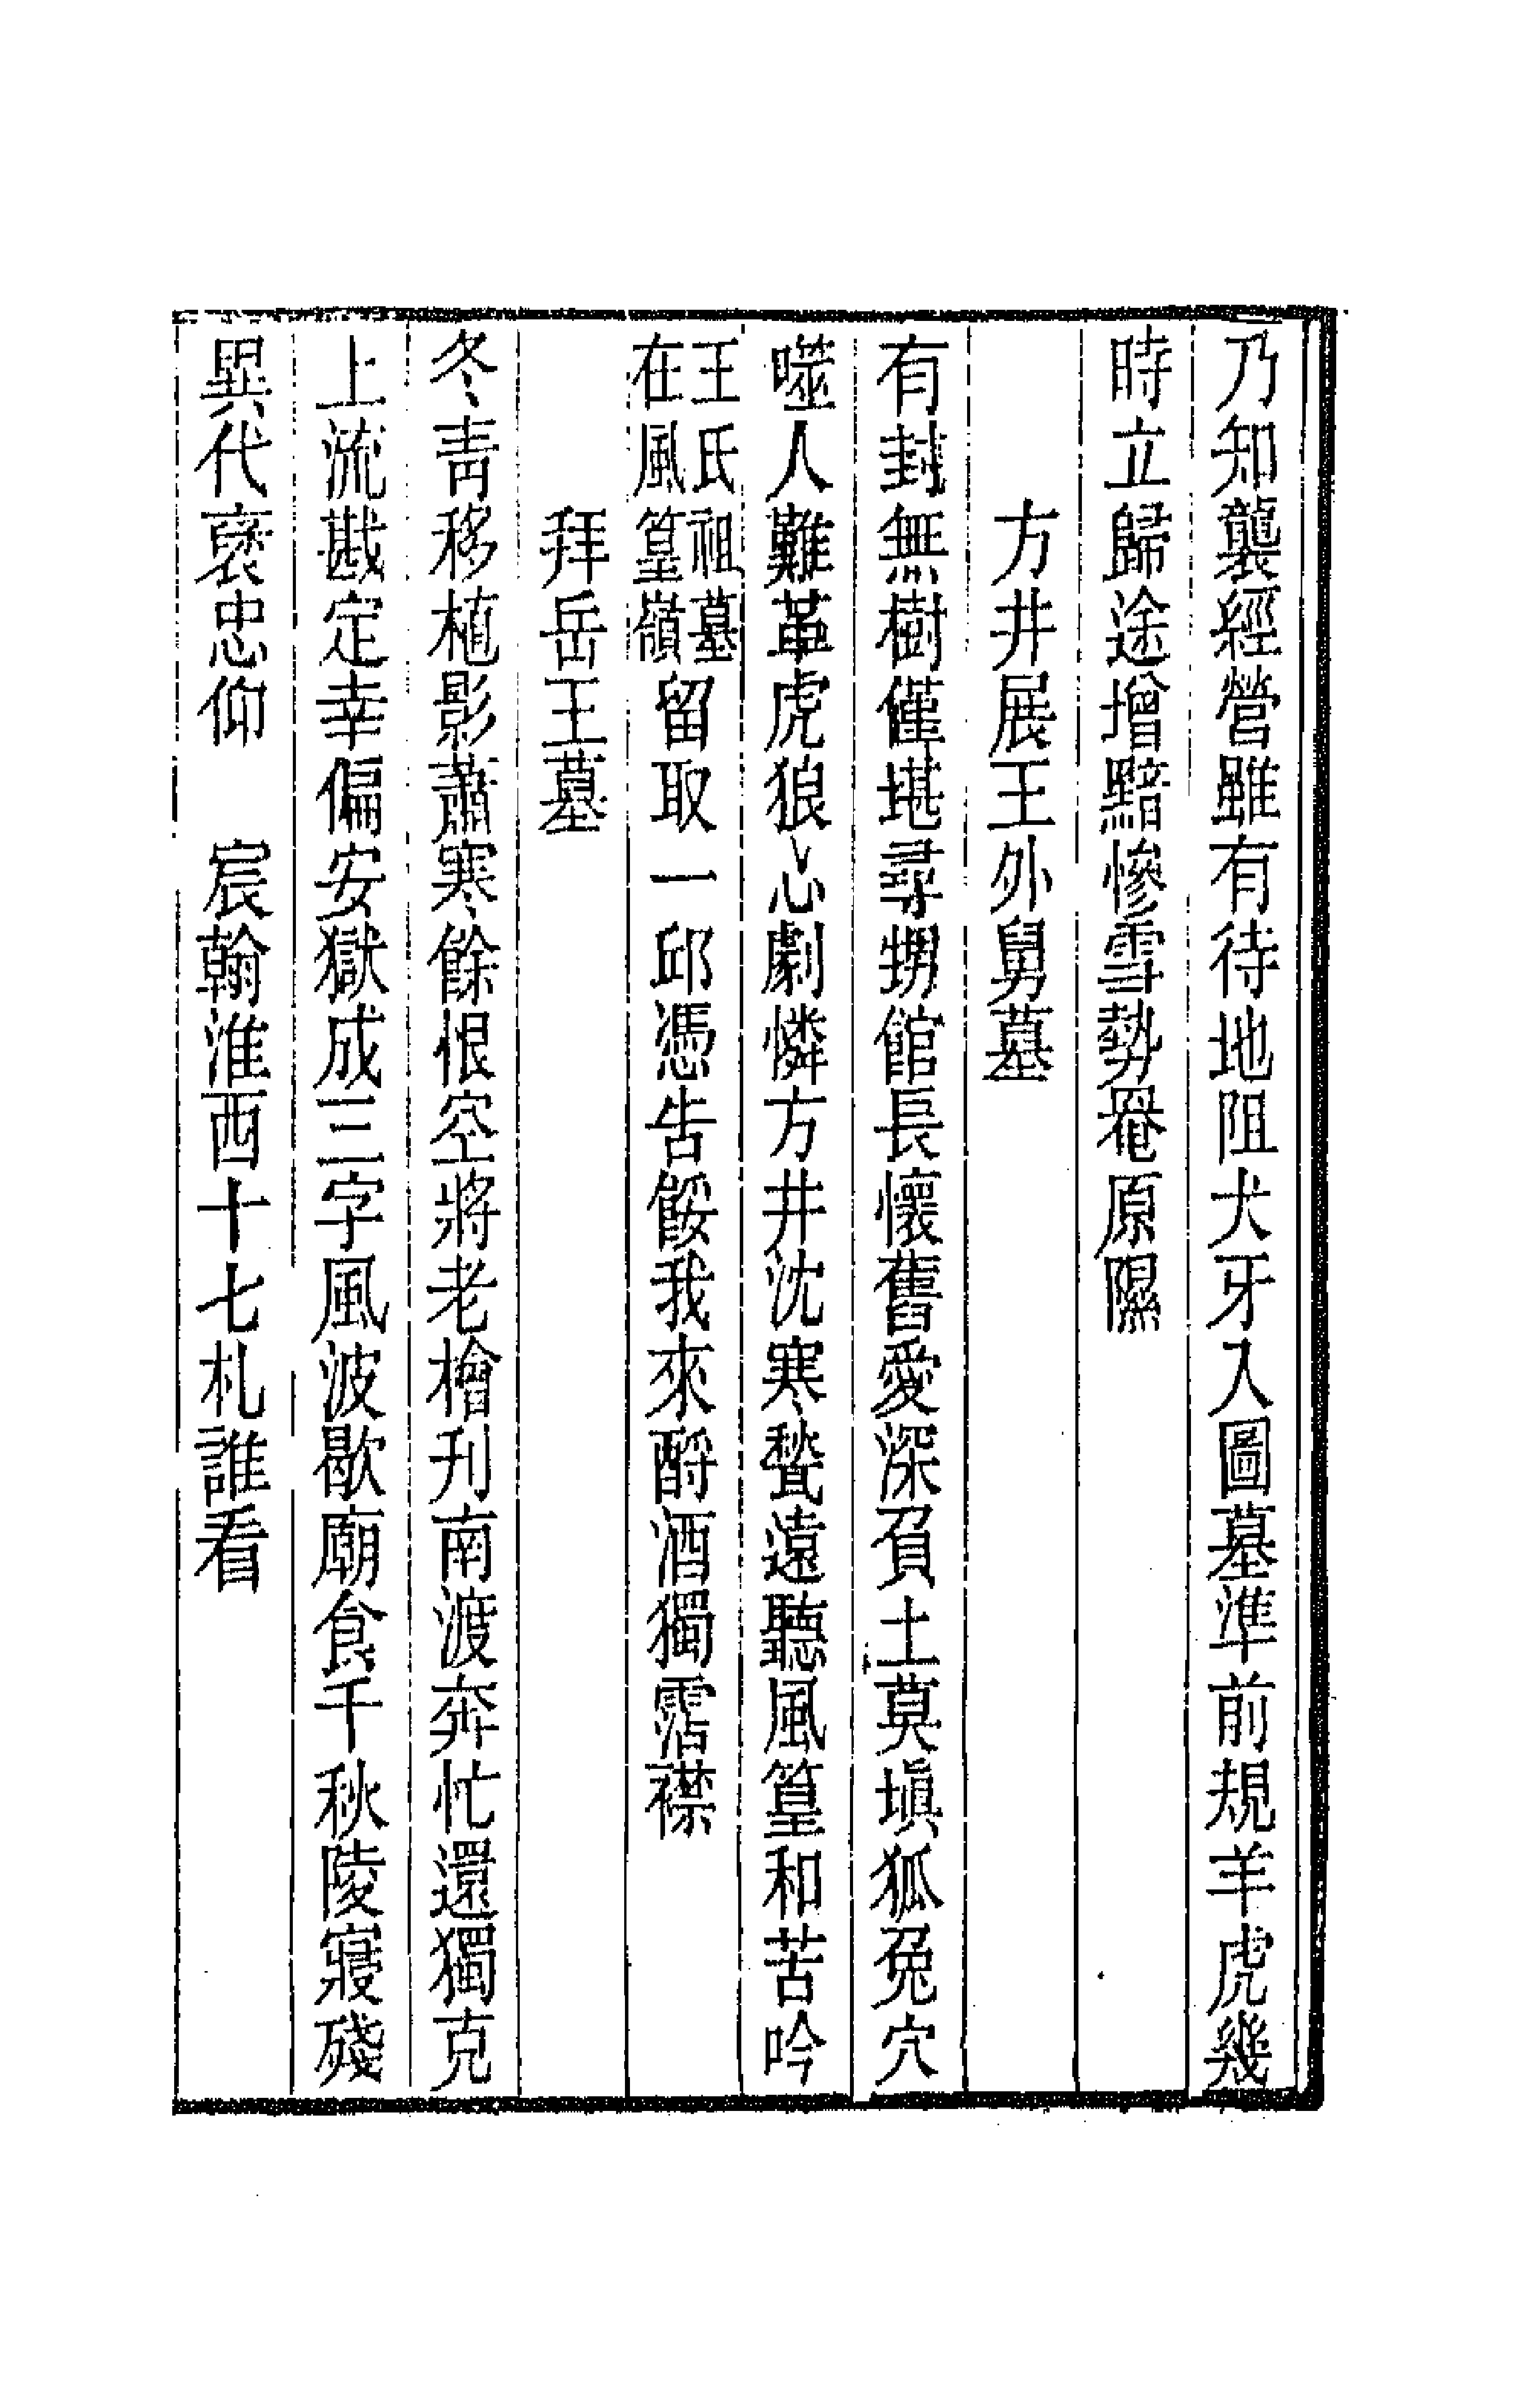 乃知襲經營雖有待地阻犬牙入圖墓準前規羊虎幾
時立歸途增黯慘雪勢罨原隰
方井展王外舅墓
有封無樹僅堪尋甥館長懷舊愛深負土莫塡狐兔穴
噬人難革虎狼心劇憐方井沈寒甃遠聽風篁和苦吟
王氏祖墓
在風篁嶺
留取一邱憑告餒我來酹酒獨霑襟
拜岳王墓
冬靑移植影蕭寒餘恨空將老檜刋南渡奔忙還獨克
上流戡定幸偏安獄成三字風波歇廟食千秋陵寢殘
異代褒忠仰　宸翰淮西十七札誰看